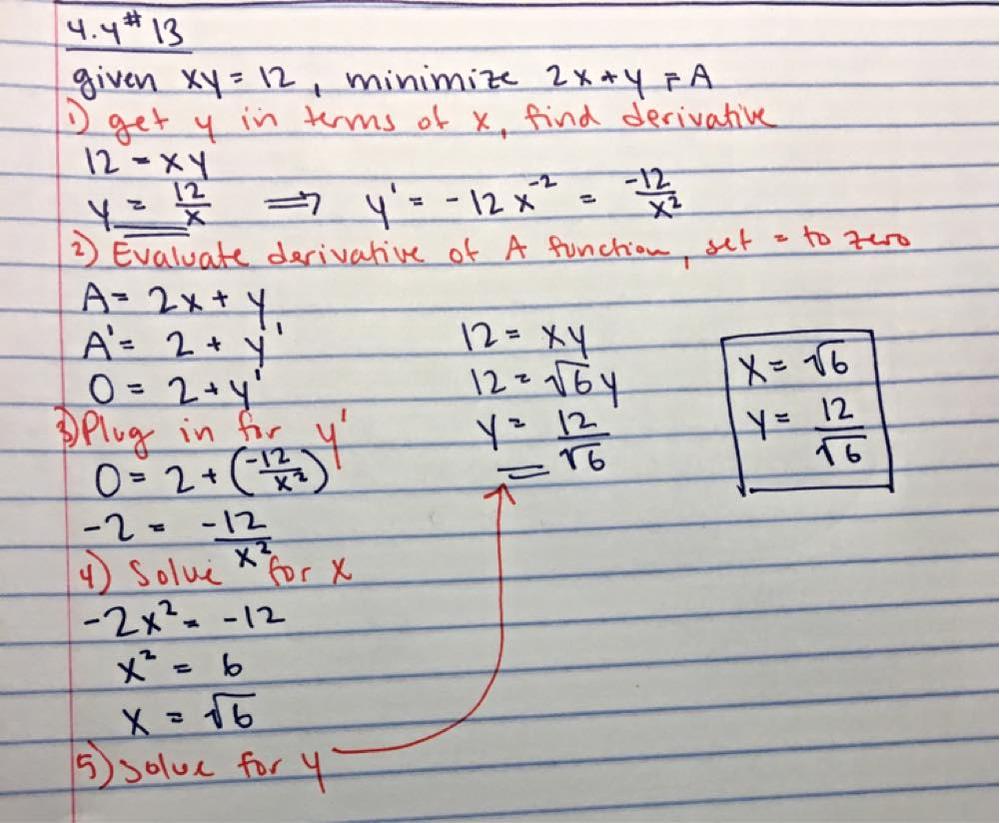 4.4 # 13
given xy = 12, minimize 2x + y = A
1) get y in terms of x, find derivative
12 = xy
y = 12/x ⟹ y' = -12x⁻² = -12/x²
2) Evaluate derivative of A function, set = to zero
A = 2x + y
A' = 2 + y'
0 = 2 + y'
3) Plug in for y'
0 = 2 + (-12/x²)
-2 = -12/x²
4) Solve for x
-2x² = -12
x² = 6
x = √6
5) Solve for y
12 = xy
12 = √6 y
y = 12/√6
x = √6
y = 12/√6